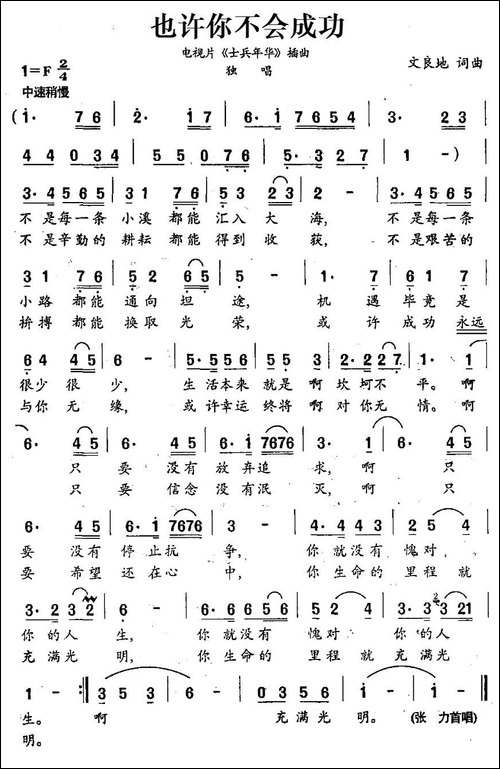 也许你不会成功
电视片《士兵年华》插曲
1=F 2/4 独唱 文良地 词曲
中速稍慢
(1· 7 6 | 2· 1 7 | 6· 1 7 6 5 4 | 3· 2 3 |
4 4 0 3 4 | 5 5 0 7 6 | 5· 3 2 7 | 1 - ) |
3· 4 5 6 5 | 3 1 7 6 | 3· 5 2 3 | 2 - | 3· 4 5 6 5 |
不 是每一条 小溪 都能 汇入 大 海, 不 是每一条
不 是辛勤的 耕耘 都能 得到 收 获, 不 是艰苦的
3 1 7 6 | 5 2 6 5 | 5 - | 1· 7 | 6 1 7 |
小路 都能 通向 坦 途, 机 遇 毕竟 是
拚搏 都能 换取 光 荣, 或 许 成功 永远
6 4 4 5 | 6 - | 5· 5 5 5 | 3 5 3 | 2· 2 2 2 7 | 1· 1 |
很少 很 少, 生 活本来 就是 啊 坎 坷不 平。 啊
与你 无 缘, 或 许幸运 终将 啊 对 你无 情。 啊
6· 4 5 | 6· 4 5 | 6· 1 7676 | 3· 1 | 6· 4 5 |
只 要 没有 放 弃追 求, 啊 只
只 要 信念 没 有泯 灭, 啊 只
6· 4 5 | 6· 1 7676 | 3 - | 4· 4 4 3 | 2 5 4 |
要 没有 停 止抗 争, 你 就没有 愧对
要 希望 还 在心 中, 你 生命的 里程 就
3· 2 3 2 | 6 - | 6· 6 6 5 6 | 5 2 | 3· 3 3 2 1 |
你 的人 生, 你 就没有 愧对 你 的人
充 满光 明, 你 生命的 里程 就 充 满光
1 - :‖ 3 5 3 | 6 - | 0 3 5 6 | 1 - | 1 - ‖
生。 啊 充满光 明。 (张 力首唱)
明。